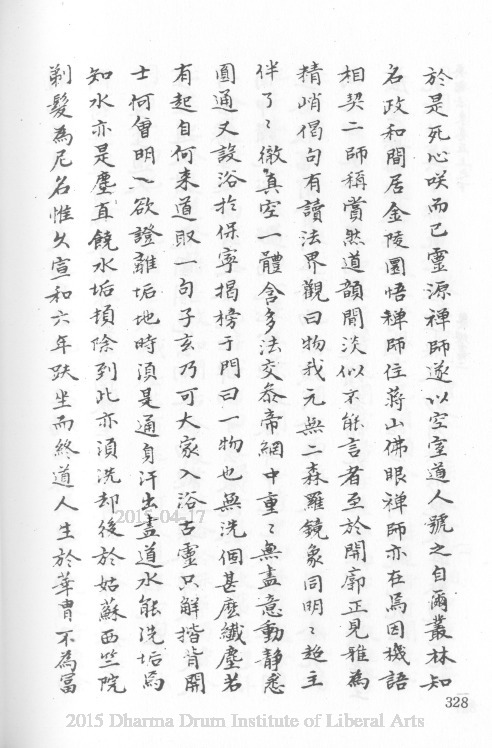 於是死心咲而已靈源禪師遂以空室道人號之自爾叢林知
名政和間居金陵圜悟禪師住蔣山佛眼禪師亦在焉因機語
相契二師稱賞然道韻閒淡似不能言者至於開廓正見雅為
精峭偈句有讀法界觀曰物我元無二森羅鏡象同明〻超主
伴了〻徹真空一體含多法交叅帝網中重〻無盡意動靜悉
圓通又設浴於保寧揭榜于門曰一物也無洗個甚麼纖塵若
有起自何来道取一句子玄乃可大家入浴古靈只解揩背開
士何曾明心欲證離垢地時須是通身汗出盡道水能洗垢焉
知水亦是塵直饒水垢頓除到此亦須洗却後於姑蘇西竺院
剃髮為尼名惟久宣和六年趺坐而終道人生於華胄不為富
2011-04-17
328
2015 Dharma Drum Institute of Liberal Arts